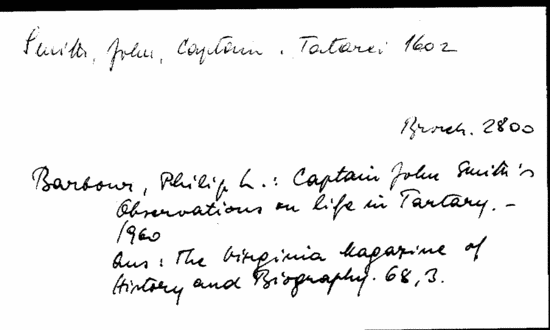 Smith, John, Captain. Tatarei 1602
Brosch. 2800
Barbour, Philip L.: Captain John Smith's
Observations on life in Tartary. –
1960
Aus: The Virginia Magazine of
History and Biography. 68,3.